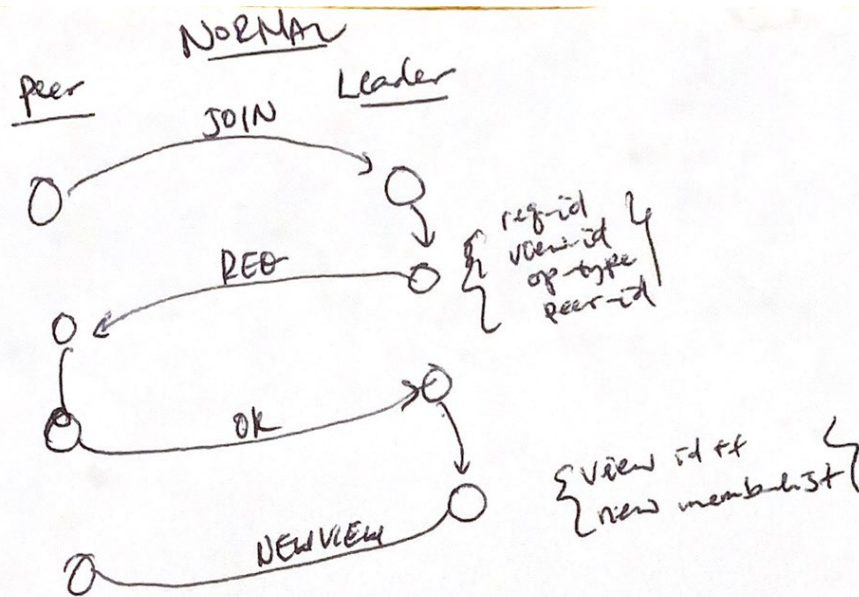 NORMAL
Peer
Leader
JOIN
req-id
view-id
op-type
peer-id
REQ
OK
view id ++
new memberlist
NEWVIEW